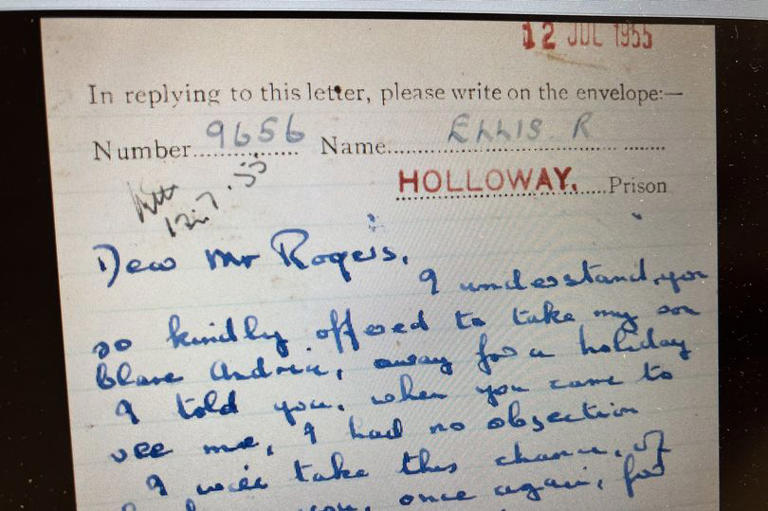 12 JUL 1955
In replying to this letter, please write on the envelope:—
Number 9656 Name ELLIS R
HOLLOWAY. Prison
12.7.55
Dear Mr Rogers,
I understand, you
so kindly offered to take my son
Clare Andria, away for a holiday
I told you, when you came to
see me, I had no objection
I will take this chance, of
you, once again, for